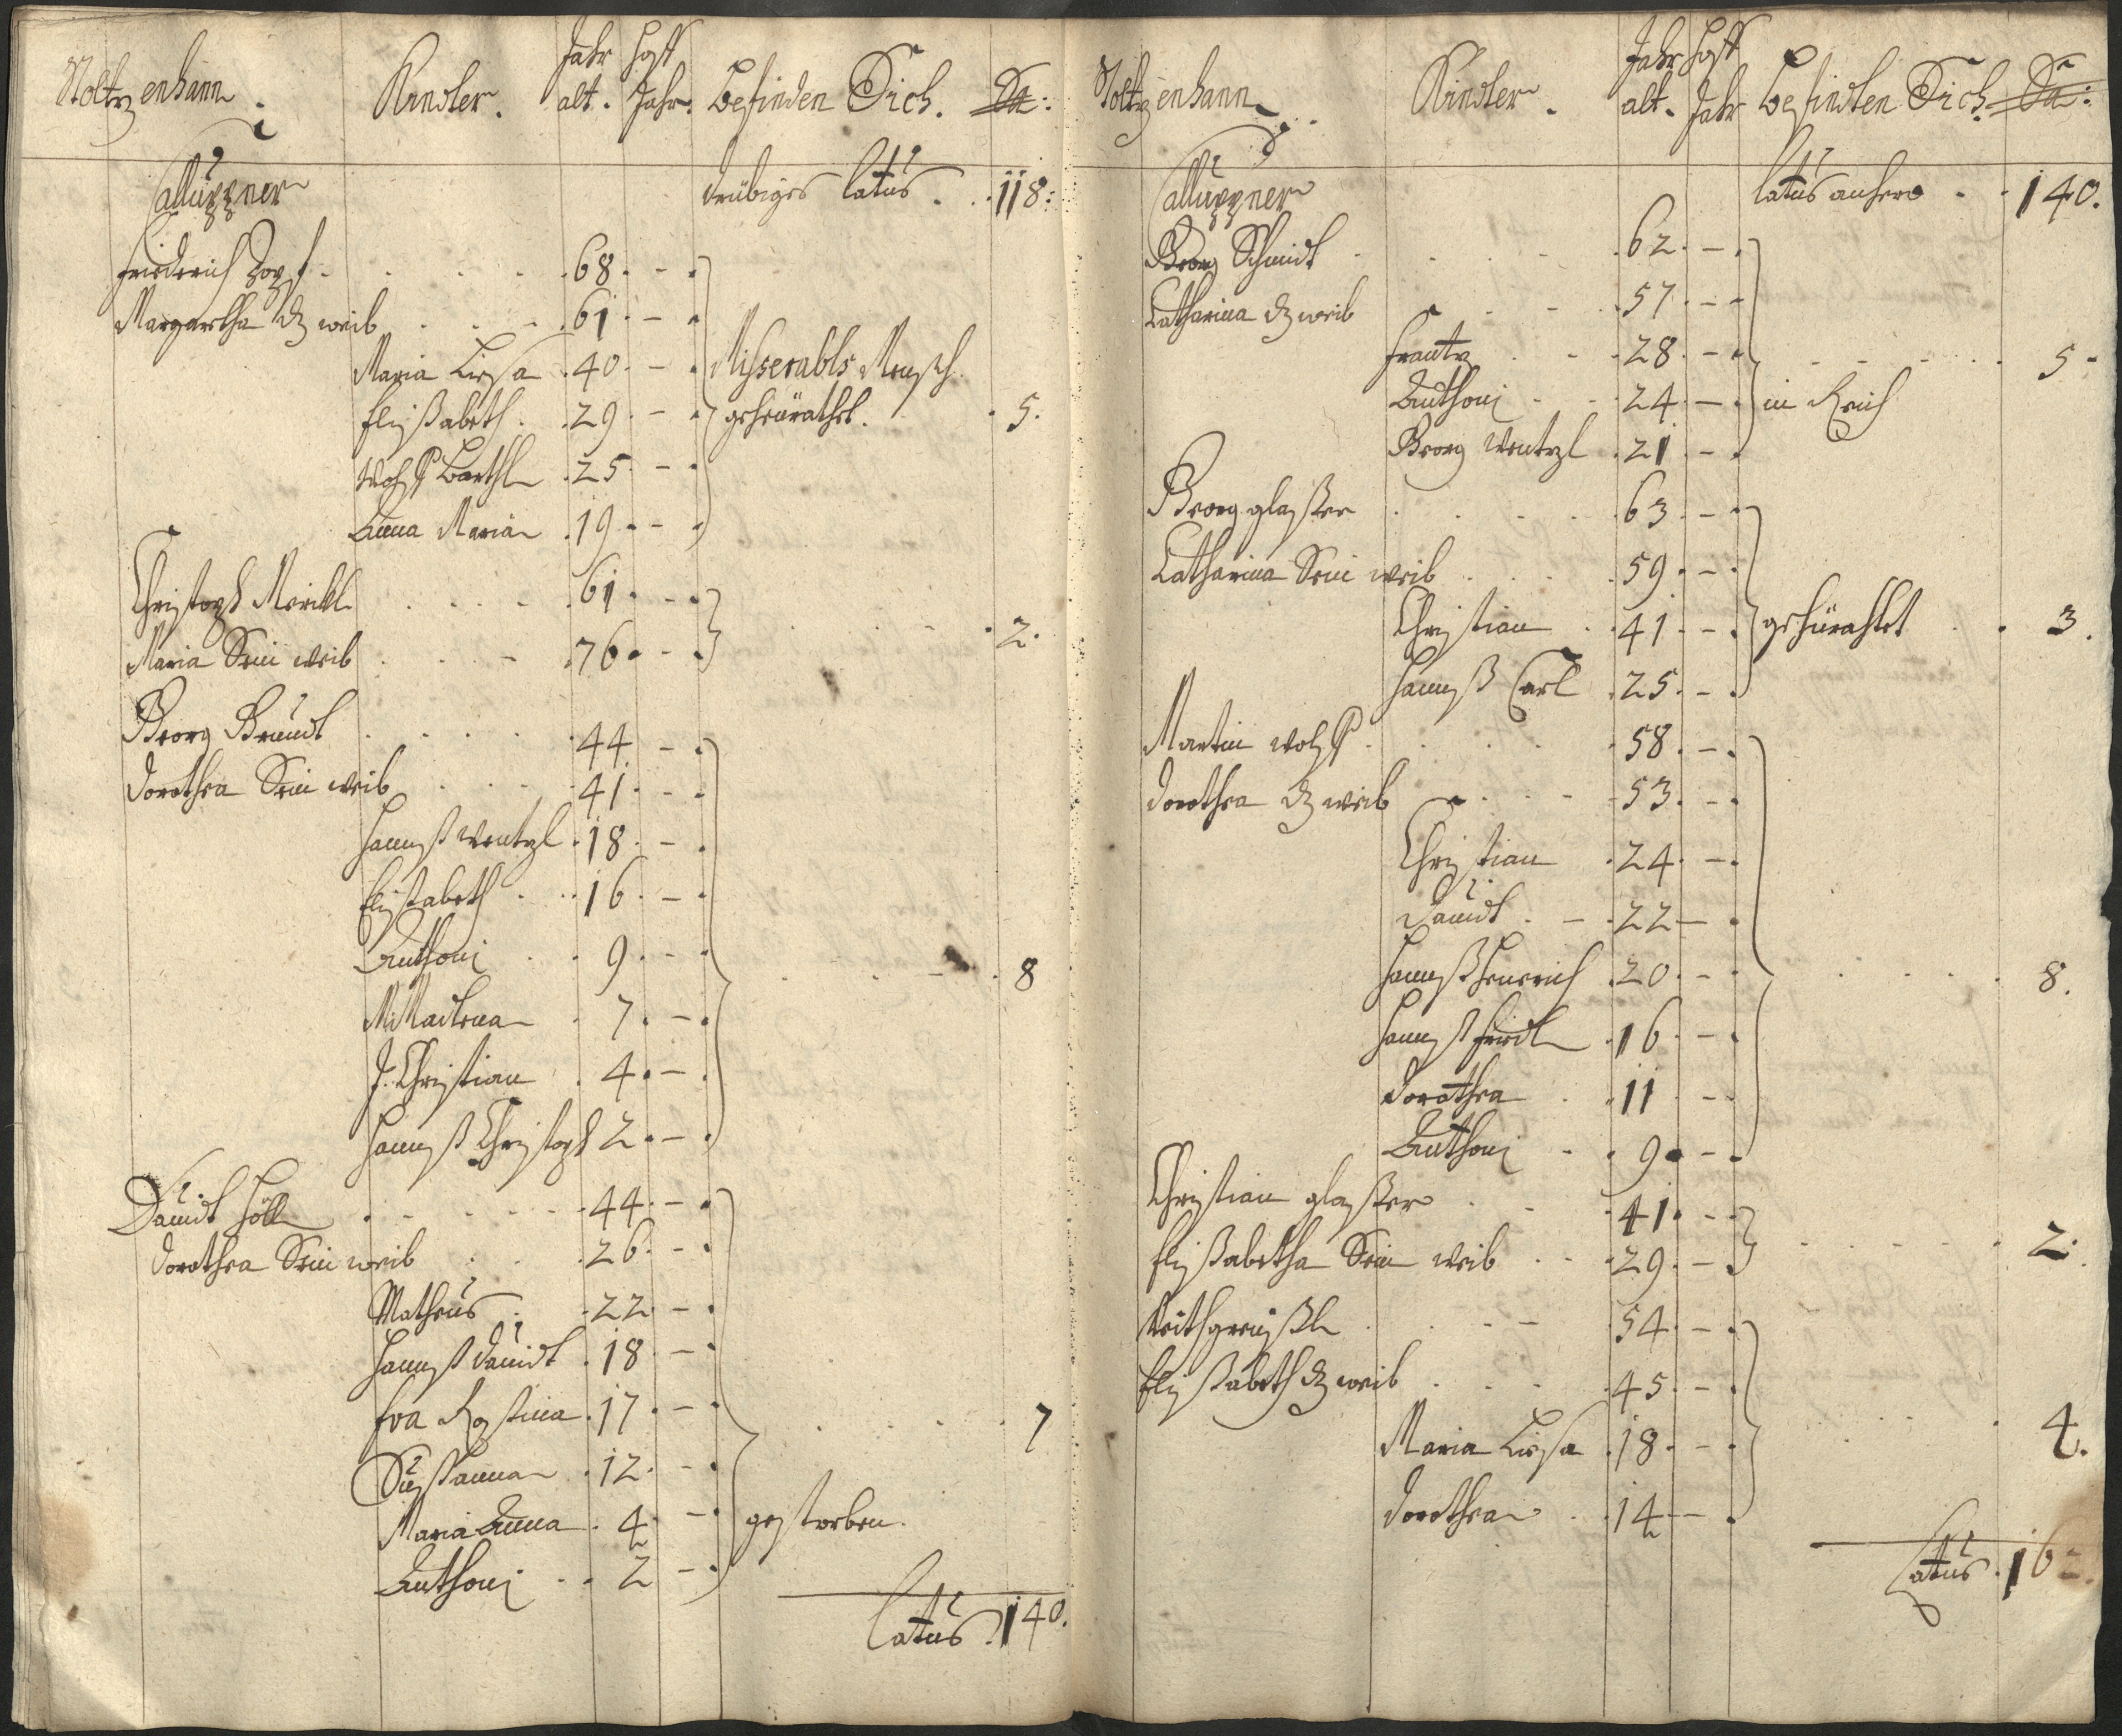 Stoltzenhann. Kindler. Jahr alt. Hoff Jahr. Befinden Sich. Sa:
Calluppner drübiges Latus . . 118:
Friederich Zopf . . . . . 68. - .
Margartha dz weib . . . 61 . - .
Maria Liesa . 40 . - . Misserabls Mensch
Elissabeth . 29 . - . geheürathet. . 5.
Wolff Barthl . 25 . - .
Anna Maria . 19 . - .
Christoph Merckl . . . . 61 . - .
Maria Sein weib . . . - . 76 . - . . . . - . 2.
Georg Brundt . . . . . 44 - .
Dorothea Sein weib . . . . 41 . - .
Hannß Wentzl . 18 . - .
Elissabeth . . 16 . - .
Anthoni . . 9 . - .
M: Madlena . 7 . - . . . . - . 8
J. Christian . 4 . - .
Hannß Christoph 2 . - .
Dauidt Höll . - . - . - . 44 . - .
Dorothea Sein weib . . . 26 . - .
Matheus . . 22 . - .
Hannß Dauidt . 18 . - .
Eva Rosina . 17 . - . . . . . 7
Sussanna . 12 . - .
Maria Anna . 4 - . gestorben.
Anthoni . . 2 - .
Latus . 140.
Stoltzenhann. Kindler. Jahr alt. Hoff Jahr Befindten Sich. Sa:
Calluppner Latus anhero . . 140.
Georg Schmidt . . . . . 62 . - .
Catharina dz weib . . - . 57 . - .
Frantz . . . 28 . - . . . . . 5 -
Anthoni . . 24 . - . in Reich
Georg Wentzl . 21 . - .
Georg glasser . . . . . 63 . - .
Catharina Sein weib . . . . 59 . - .
Christian . 41 . - . gehürahtet . . 3.
Hannß Carl . 25 . - .
Martin Wolff . . . . . 58 . - .
Dorothea dz weib . . . - . 53 . - .
Christian . 24 . - .
Dauidt . - . 22 - .
Hannß Henerich . 20 . - . . . . . 8.
Hannß Friedl . 16 . - .
Dorothea . 11 . -
Anthoni . . 9 . - .
Christian glasser . . . 41 . - .
Elissabetha Sein weib . . . 29 . - . . . . . 2.
Veith . . - . 54 . - .
Elissabeth dz weib . . . . 45 . - .
Maria Liesa . 18 . - . . . . 4.
Dorothea . . 14 - - .
Latus . 162.